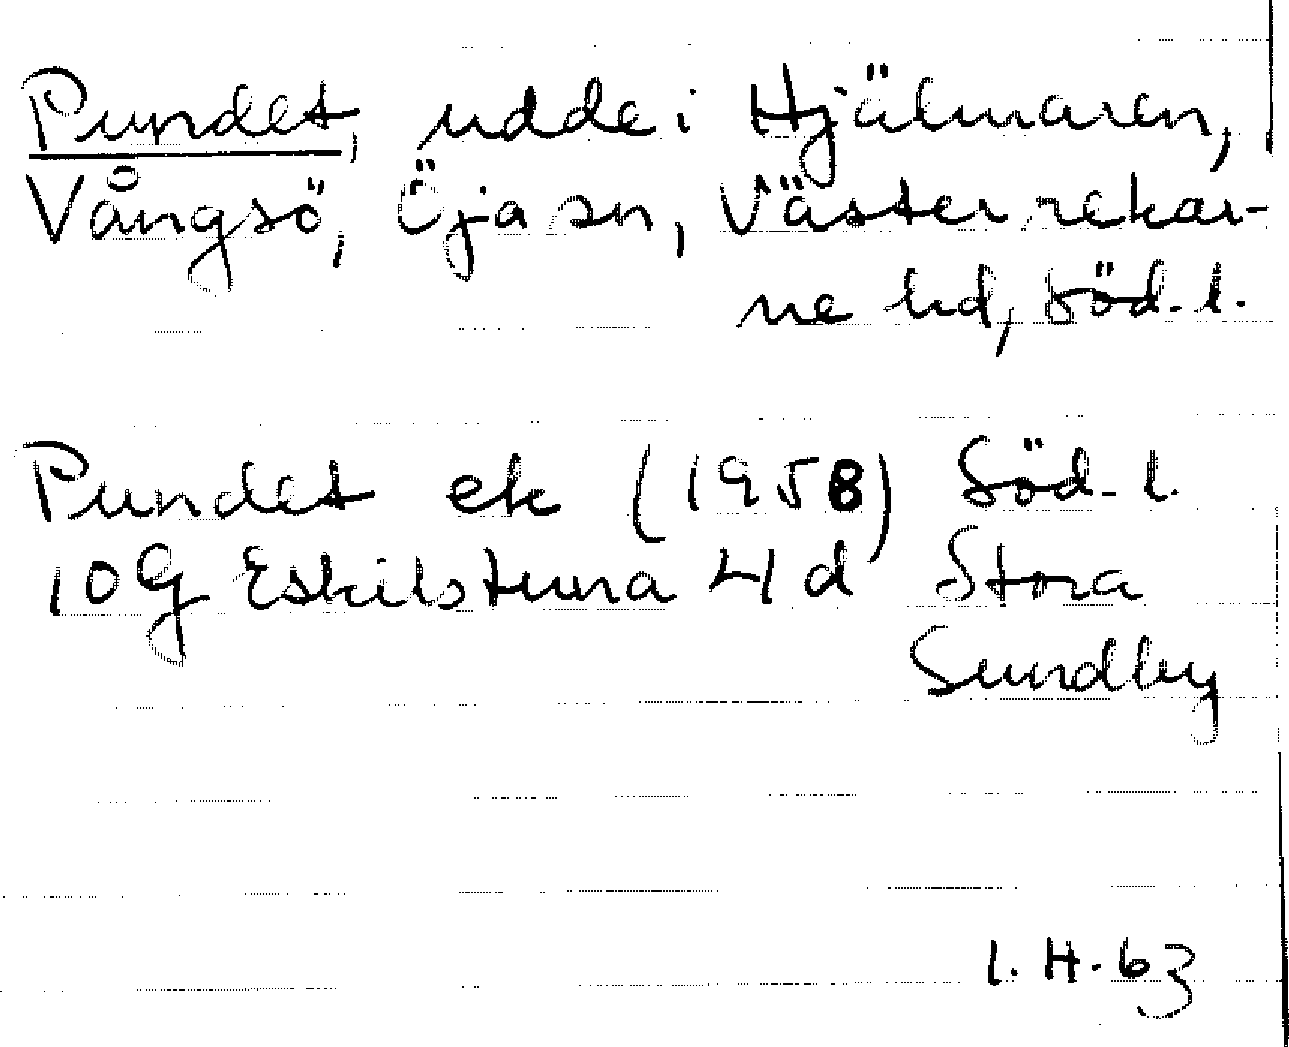 Pundet, udde i Hjälmaren,
Vångsö, Öja sn, Västerrekar-
ne hd, Söd.l.
Pundet ek (1958) Söd.l.
10G Eskilstuna 4d Stora
Sundby
I.H.63